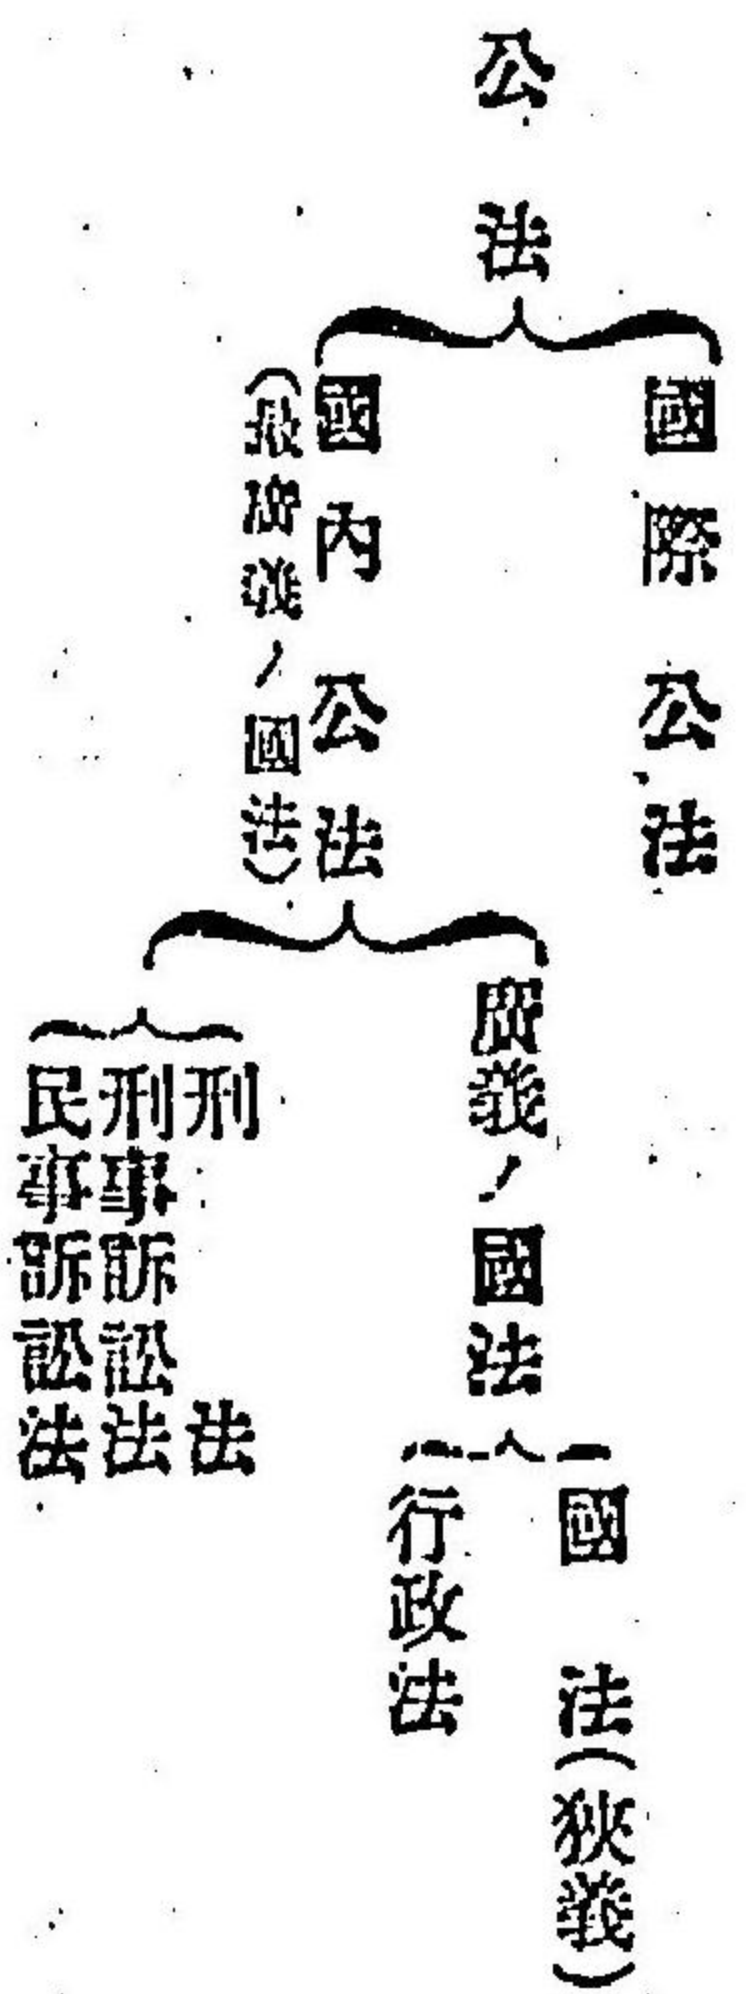 公法
國際公法
國內公法
(最廣義ノ國法)
廣義ノ國法
國法(狹義)
行政法
刑法
刑事訴訟法
民事訴訟法